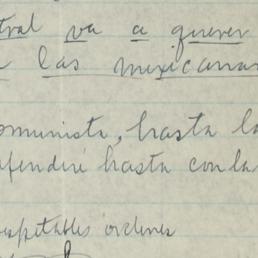 tral va a querer
las mexicanas
comunista, hasta la
efenderé hasta con la
respetables ordenes